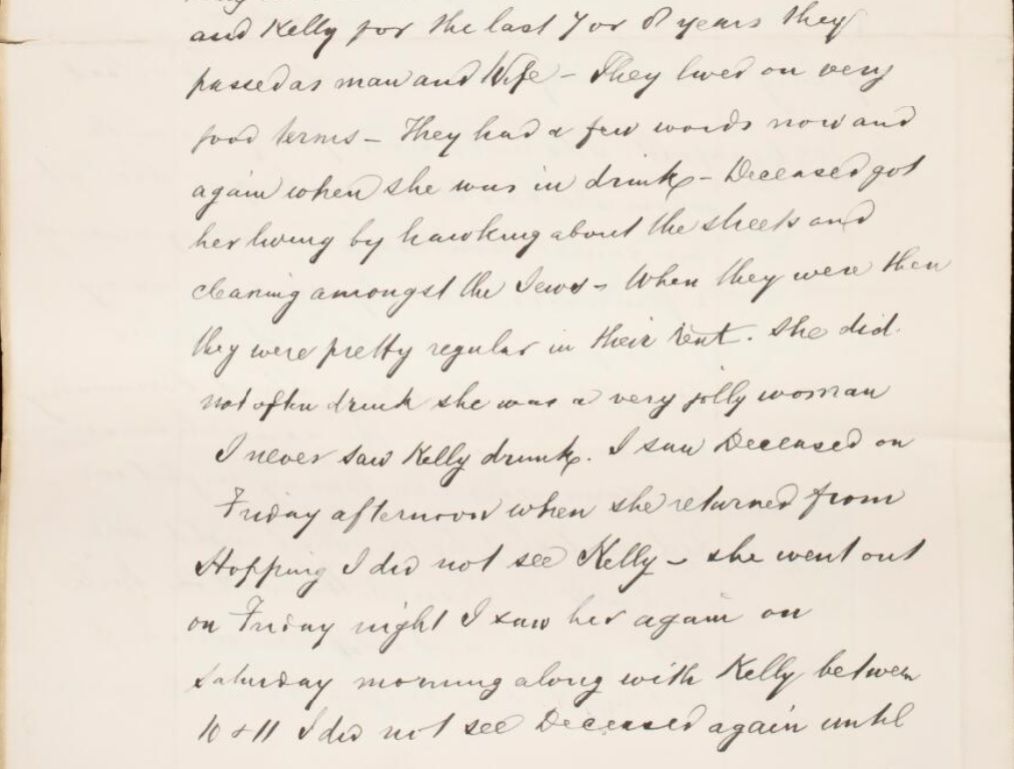 and Kelly for the last 7 or 8 years they
passed as man and Wife - They lived on very
good terms - They had a few words now and
again when she was in drink - Deceased got
her living by hawking about the streets and
cleaning amongst the Jews - When they were there
they were pretty regular in their rent. She did
not often drink she was a very jolly woman
I never saw Kelly drunk. I saw Deceased on
Friday afternoon when she returned from
Hopping I did not see Kelly - she went out
on Friday night I saw her again on
Saturday morning along with Kelly between
10 & 11 I did not see Deceased again until